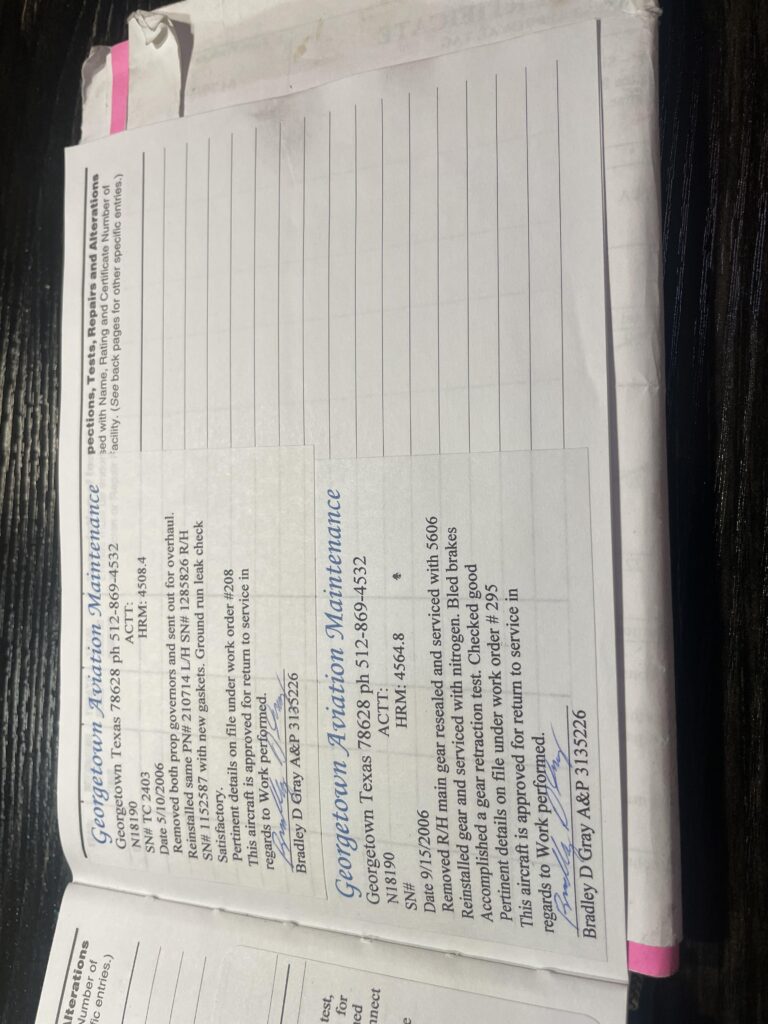 pections, Tests, Repairs and Alterations
sed with Name, Rating and Certificate Number of
acility. (See back pages for other specific entries.)
Georgetown Aviation Maintenance
Georgetown Texas 78628 ph 512-869-4532
N18190 ACTT:
SN# TC 2403 HRM: 4508.4
Date 5/10/2006
Removed both prop governors and sent out for overhaul.
Reinstalled same PN# 210714 L/H SN# 1285826 R/H
SN# 1152587 with new gaskets. Ground run leak check
Satisfactory.
Pertinent details on file under work order #208
This aircraft is approved for return to service in
regards to Work performed.
Bradley D Gray A&P 3135226
Georgetown Aviation Maintenance
Georgetown Texas 78628 ph 512-869-4532
N18190 ACTT:
SN# HRM: 4564.8
Date 9/15/2006
Removed R/H main gear resealed and serviced with 5606
Reinstalled gear and serviced with nitrogen. Bled brakes
Accomplished a gear retraction test. Checked good
Pertinent details on file under work order # 295
This aircraft is approved for return to service in
regards to Work performed.
Bradley D Gray A&P 3135226
lterations
Number of
fic entries.)
test,
for
nnect